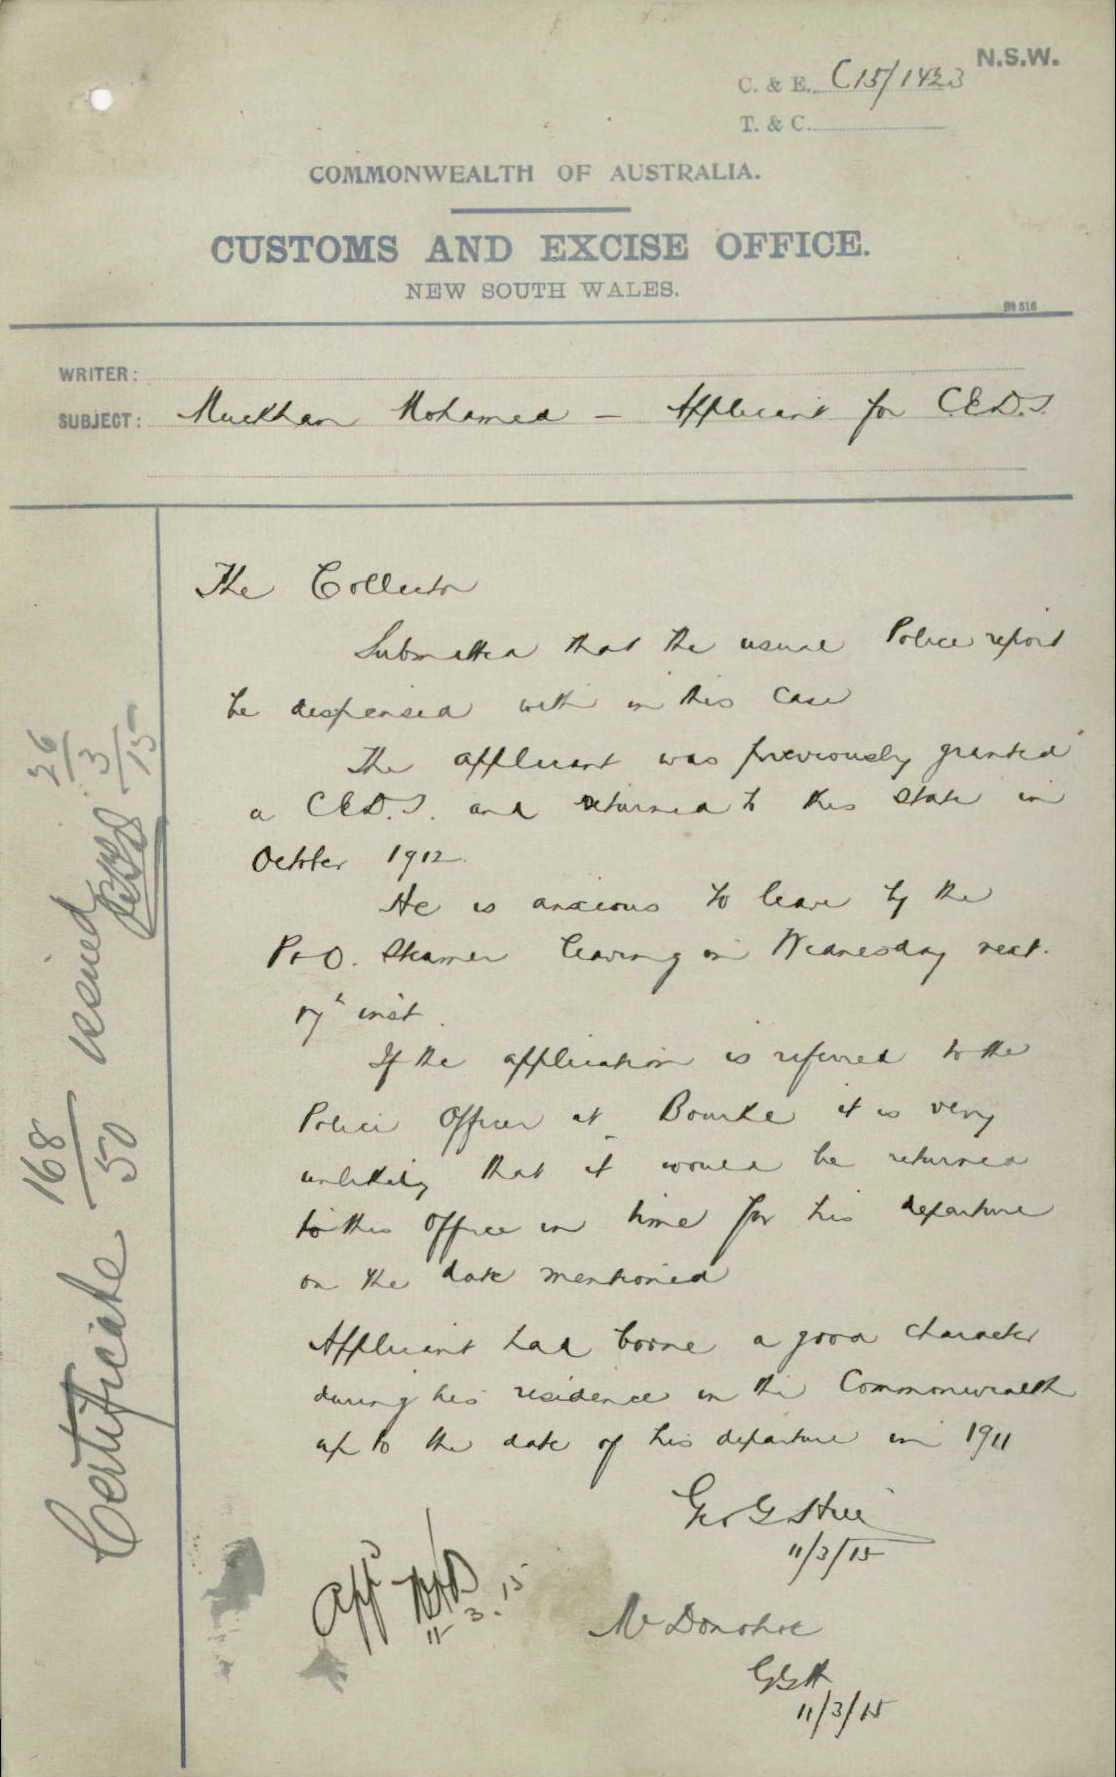 N.S.W.
C. & E. C15/1423
T. & C.
COMMONWEALTH OF AUSTRALIA.
CUSTOMS AND EXCISE OFFICE.
NEW SOUTH WALES.
WRITER:
SUBJECT: Muckhan Mohamed — Applicant for C.E.D.T.
The Collector
Submitted that the usual Police report
be dispensed with in this case
The applicant was previously granted
a C.E.D.T. and returned to this State in
October 1912.
He is anxious to leave by the
P & O. Steamer leaving on Wednesday next.
17th inst.
If the application is referred to the
Police Officer at Bourke it is very
unlikely that it would be returned
to this Office in time for his departure
on the date mentioned
Applicant had borne a good character
during his residence in the Commonwealth
up to the date of his departure in 1911
Geo G
11/3/15
App
11.3.15
Mr Donohoe
GGH
11/3/15
Certificate 168/50 issued
26/3/15